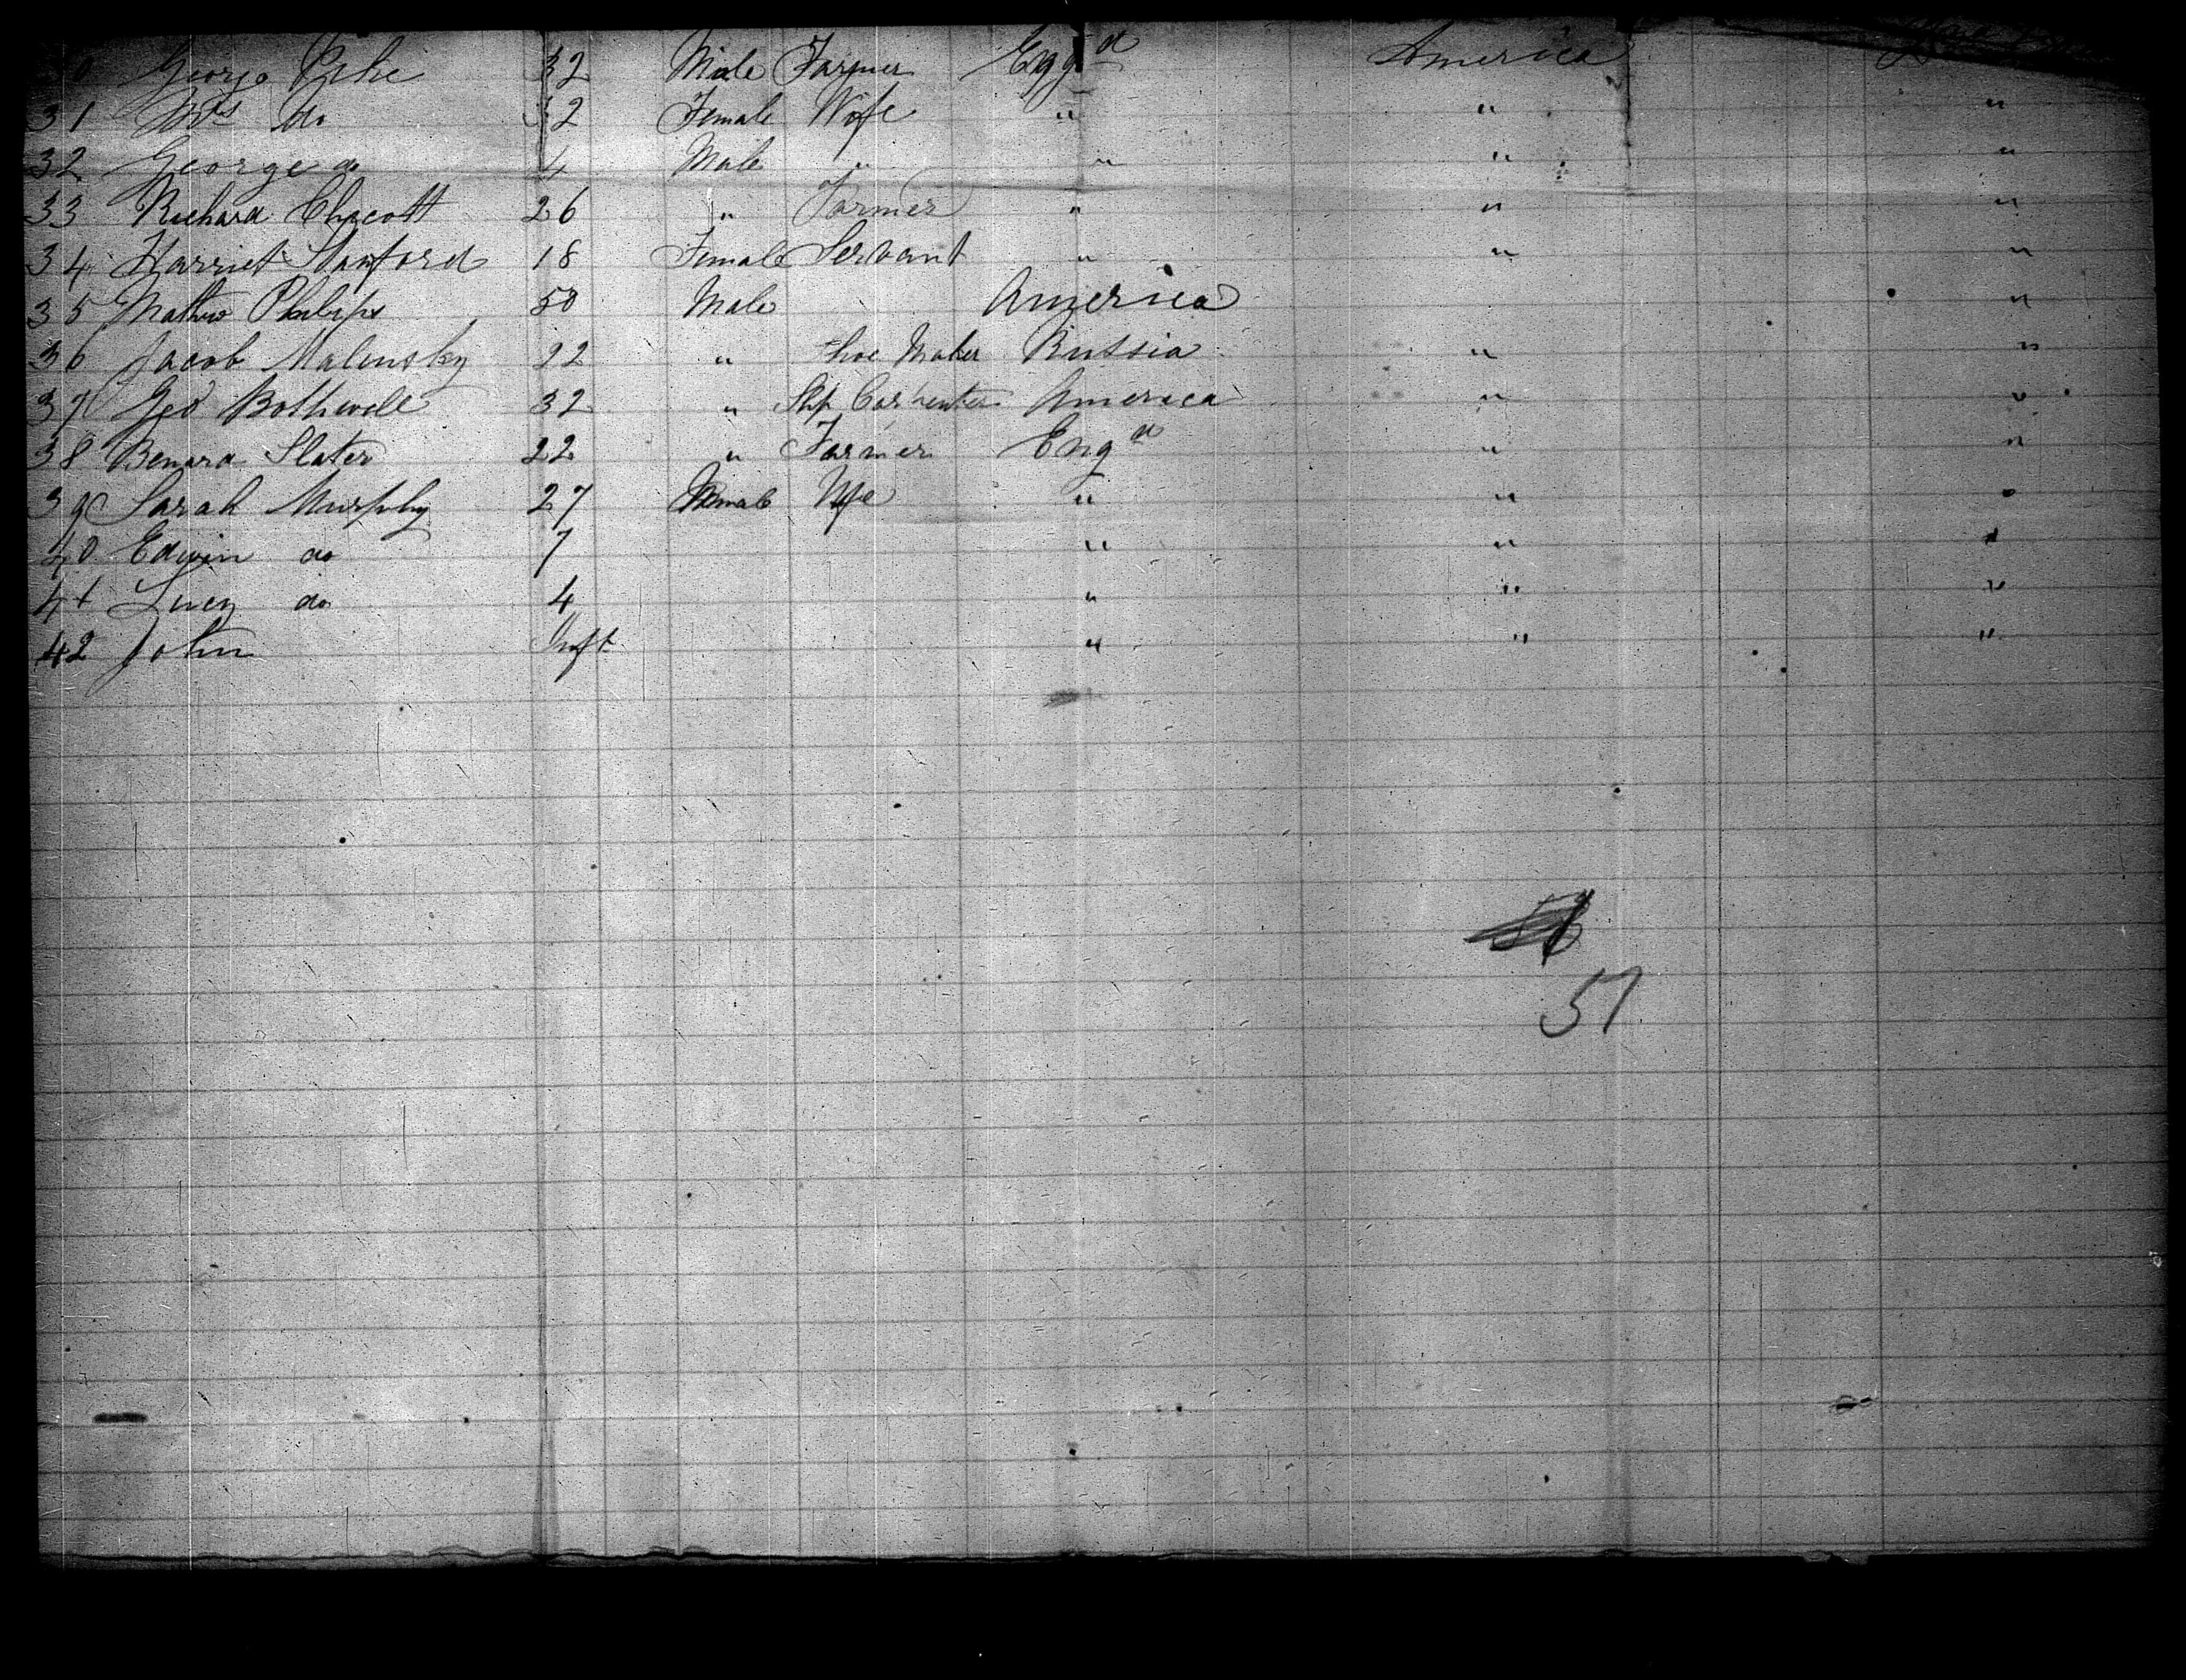 0 George Pike 32 Male Farmer Eng d America
31 Mrs do 32 Female Wife " " "
32 George do 4 Male " " " "
33 Richard Chacott 26 " Farmer " " "
34 Harriet Stanford 18 Female Servant " " "
35 Mathew Philips 50 Male America "
36 Jacob Malinsky 22 " Shoe Maker Russia " "
37 Geo Bothwell 32 " Ship Carpenter America " "
38 Benard Slater 22 " Farmer Eng d " "
39 Sarah Murphy 27 Female Wife " " "
40 Edwin do 7 " " "
41 Lucy do 4 " " "
42 John Inft " " "
57